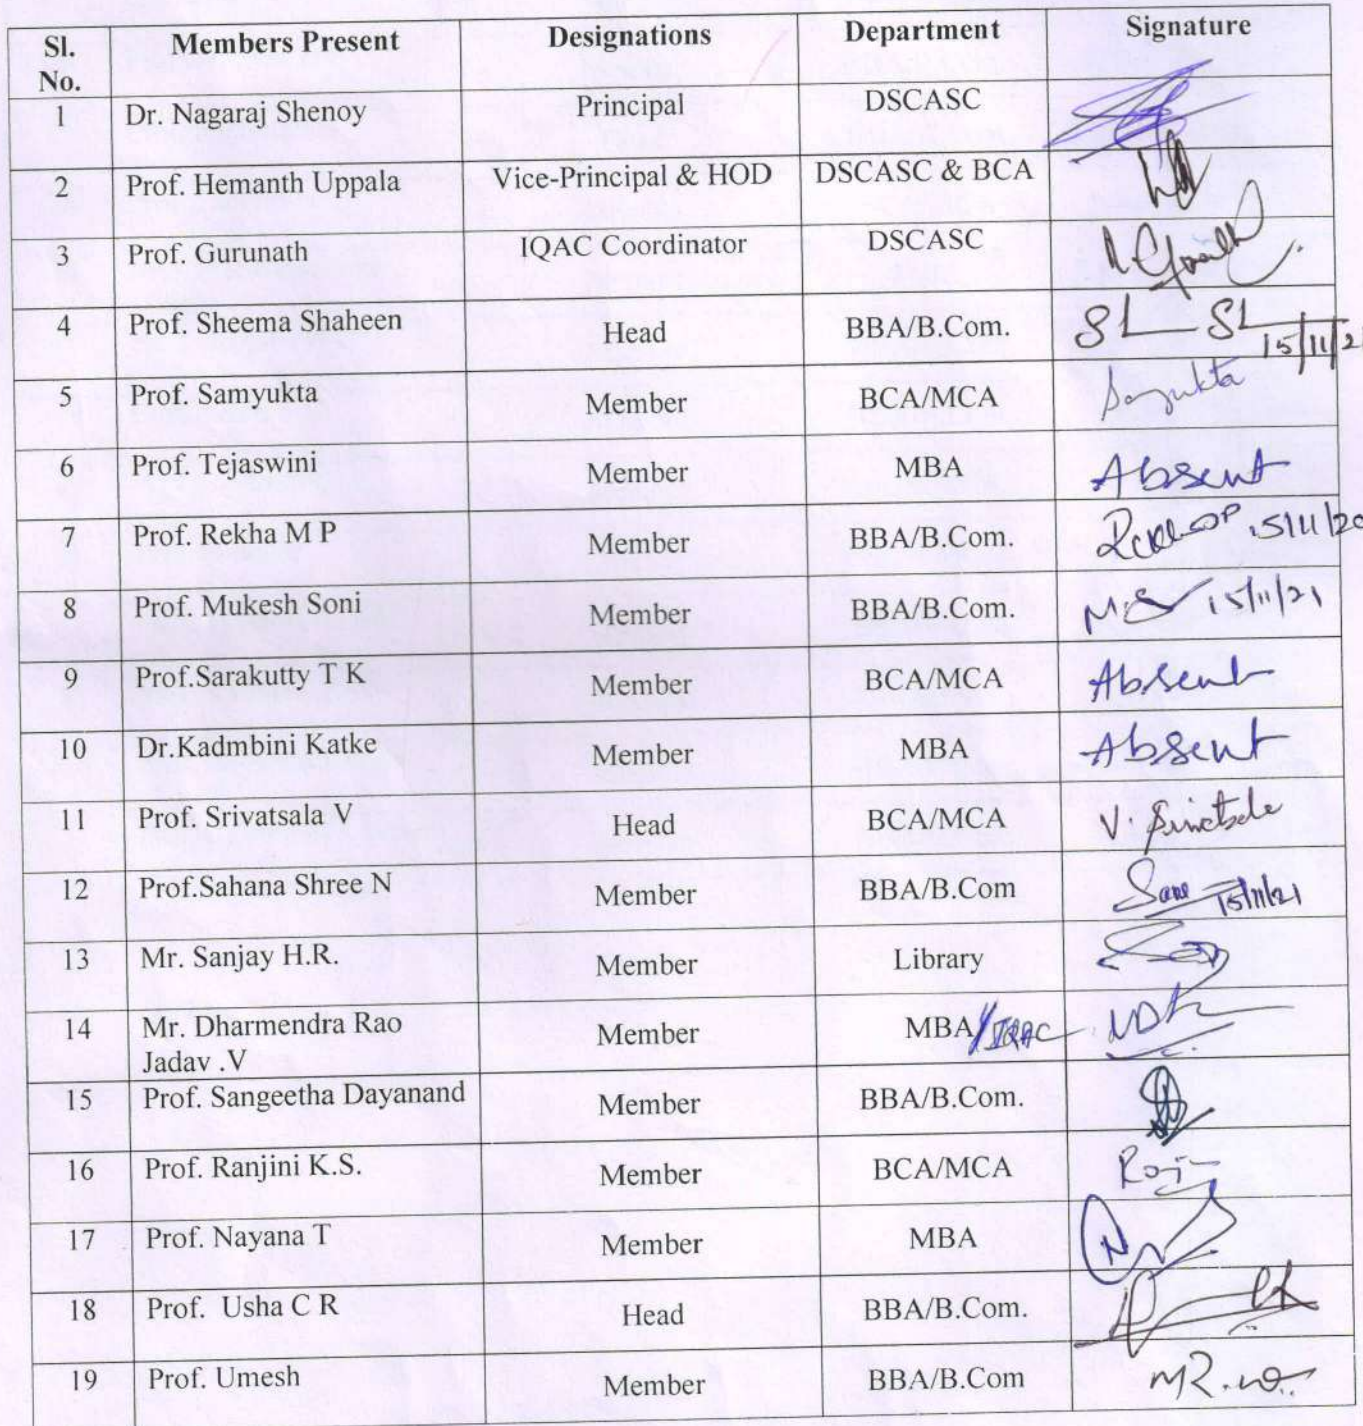 Sl. No. Members Present Designations Department Signature
1 Dr. Nagaraj Shenoy Principal DSCASC
2 Prof. Hemanth Uppala Vice-Principal & HOD DSCASC & BCA
3 Prof. Gurunath IQAC Coordinator DSCASC
4 Prof. Sheema Shaheen Head BBA/B.Com. 15/11/2
5 Prof. Samyukta Member BCA/MCA Samyukta
6 Prof. Tejaswini Member MBA Absent
7 Prof. Rekha M P Member BBA/B.Com. 15/11/20
8 Prof. Mukesh Soni Member BBA/B.Com. 15/11/21
9 Prof.Sarakutty T K Member BCA/MCA Absent
10 Dr.Kadmbini Katke Member MBA Absent
11 Prof. Srivatsala V Head BCA/MCA
12 Prof.Sahana Shree N Member BBA/B.Com 15/11/21
13 Mr. Sanjay H.R. Member Library
14 Mr. Dharmendra Rao Member MBA/IQAC
Jadav .V
15 Prof. Sangeetha Dayanand Member BBA/B.Com.
16 Prof. Ranjini K.S. Member BCA/MCA
17 Prof. Nayana T Member MBA
18 Prof. Usha C R Head BBA/B.Com.
19 Prof. Umesh Member BBA/B.Com